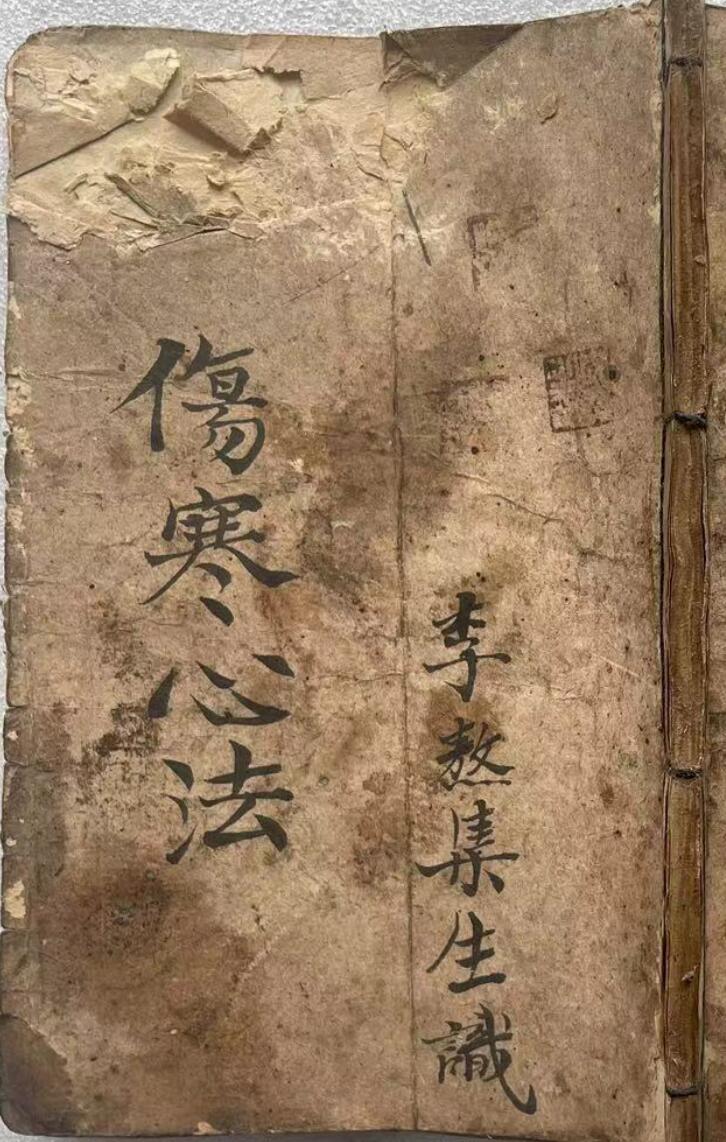 李熬集生識
傷寒心法